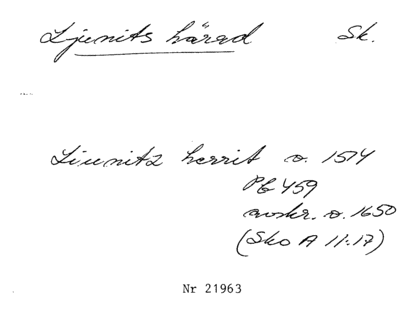 Ljunits härad Sk.
Liunitz herrit o. 1574
PB 459
avskr. o. 1650
(Sko A 11:17)
Nr 21963